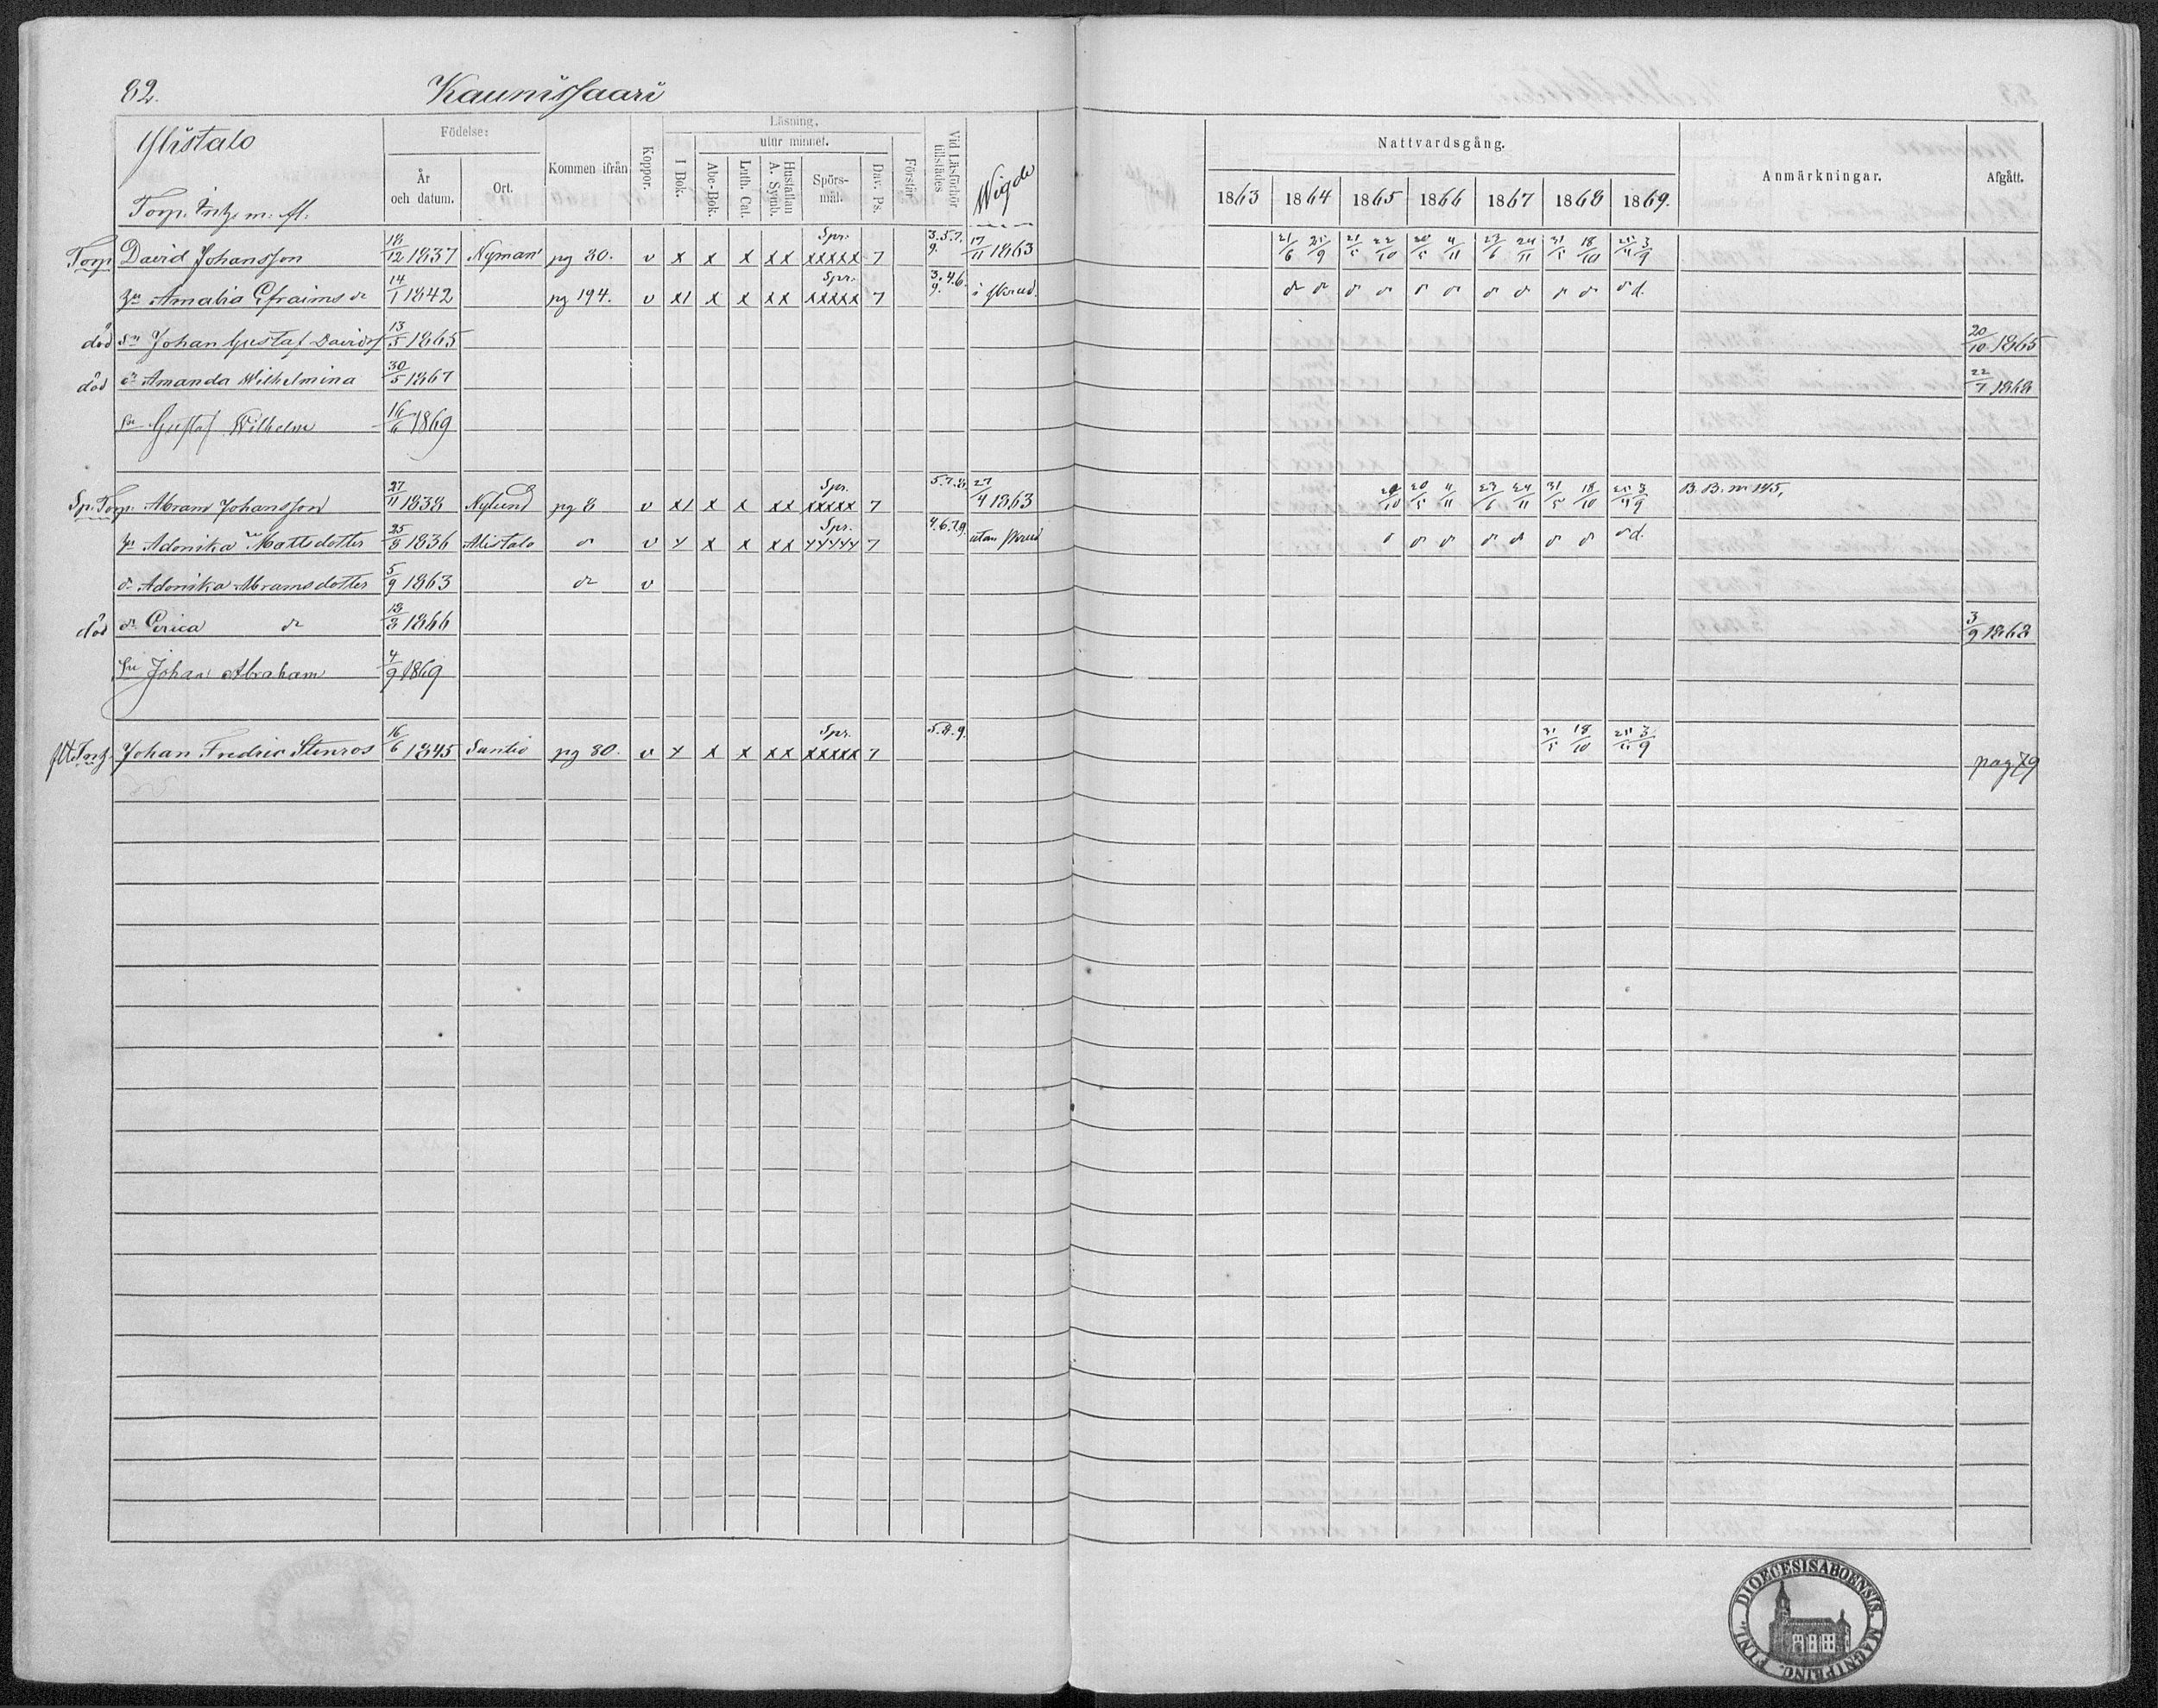 82. Kaunissaari
Ylistalo
Torp. Inhs m. fl.
Födelse:
År och datum.
Ort.
Kommen ifrån
Koppor.
Läsning.
I Bok.
utur minnet.
Abc-Bok.
Luth. Cat.
Hustaflan A. Symb.
Spörsmål.
Dav. Ps.
Förstår.
Vid Läsförhör tillstädes
Wigde
Nattvardsgång.
1863 1864 1865 1866 1867 1868 1869.
Anmärkningar.
Afgått.
Torp David Johansson 18/12 1837 Nyman pg 80. v x x x xx Spr. xxxxx 7 3.5.7.9. 17/11 1863 21/6 25/9 21/5 22/10 20/5 4/11 23/6 24/11 31/5 18/10 25/4 3/9
hu Amalia Efraims dr 14/1 1842 pg 194. v x1 x x xx Spr. xxxxx 7 3.4.6.9. i skrud.
död sn Johan Gustaf Davids 13/5 1865 20/10 1865
död dr Amanda Wilhelmina 30/5 1867 22/7 1868
sn Gustaf Wilhelm 16/6 1869
Sp. Torp. Abram Johansson 27/11 1838 Nylund pg 8 v x1 x x xx Spr. xxxxx 7 5.7.8. 27/4 1863 22/10 20/5 4/11 23/6 24/11 31/5 18/10 25/4 3/9 B. B. n. 145,
hu Adonika Mattsdotter 25/8 1836 Alistalo v x x x xx Spr. xxxxx 7 4.6.7.9. utan skrud
dr Adonika Abramsdotter 5/9 1863 dr v
död dr Erica dr 18/8 1866 3/9 1868
sn Johan Abraham 4/9 1869
Johan Fredric Stenros 16/6 1845 Santio pg 80. v x x x xx Spr. xxxxx 7 5.8.9. 31/5 18/10 25/4 3/9 pag 79
FINL. DIOECESIS ABOENSIS. MAGNI PRINC.